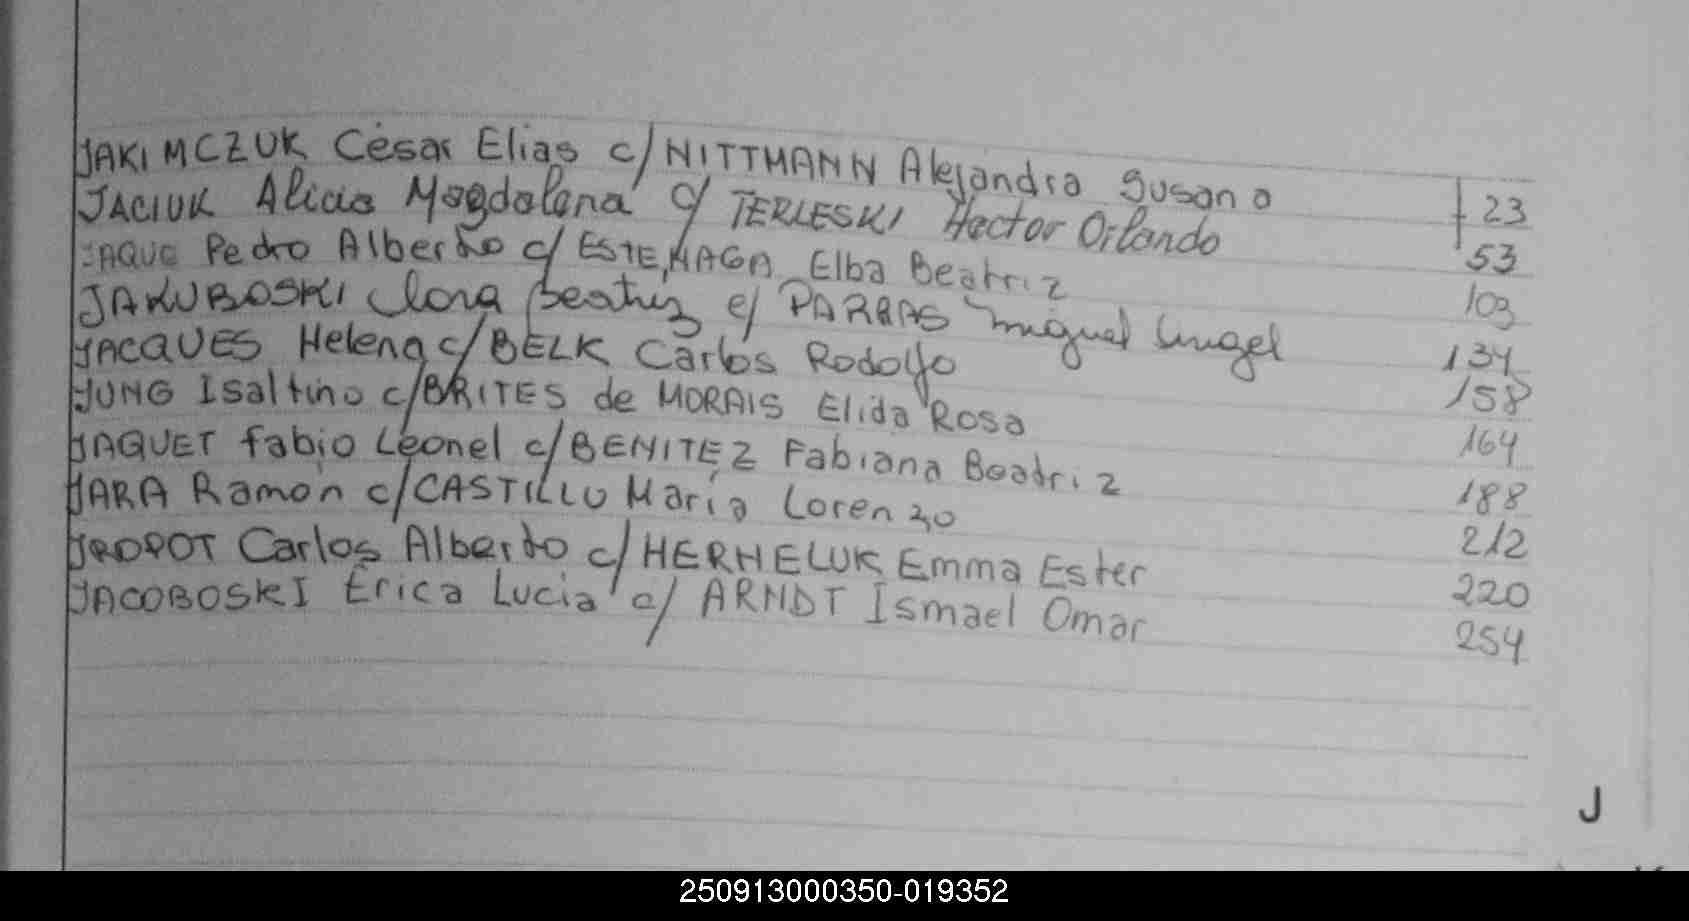 JAKIMCZUK César Elias c/ NITTMANN Alejandra Susana 23
JACIUK Alicia Magdalena c/ TERLESKI Hector Orlando 53
JAQUE Pedro Alberto c/ Elba Beatriz 103
JAKUBOSKI Clara Beatriz c/ PARRAS Miguel Angel 134
JACQUES Helena c/ BELK Carlos Rodolfo 158
JUNG Isaltino c/ BRITES de MORAIS Elida Rosa 164
JAQUET Fabio Leonel c/ BENITEZ Fabiana Beatriz 188
JARA Ramón c/ CASTILLO María Lorenzo 212
JROPOT Carlos Alberto c/ HERHELUK Emma Ester 220
JACOBOSKI Erica Lucia c/ ARNDT Ismael Omar 254
J
250913000350-019352